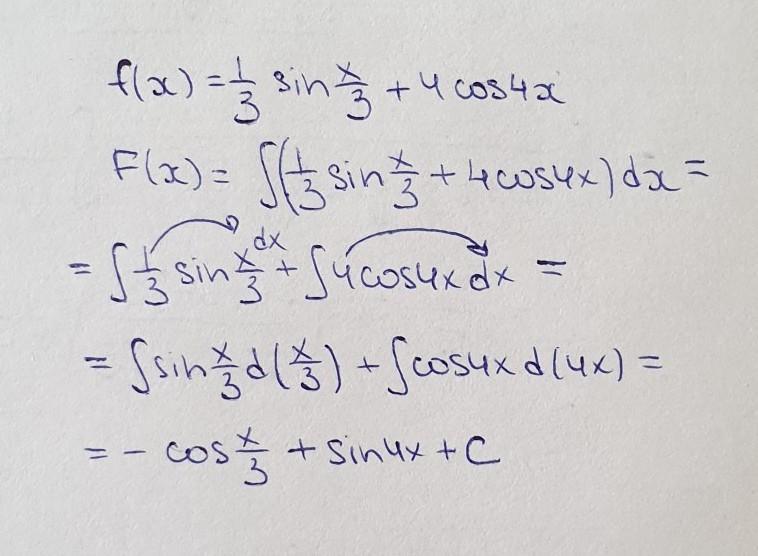 f(x) = 1/3 sin x/3 + 4 cos4x
F(x) = ∫(1/3 sin x/3 + 4cos4x) dx =
= ∫ 1/3 sin x/3 dx + ∫ 4cos4x dx =
= ∫ sin x/3 d(x/3) + ∫ cos4x d(4x) =
= - cos x/3 + sin4x + C